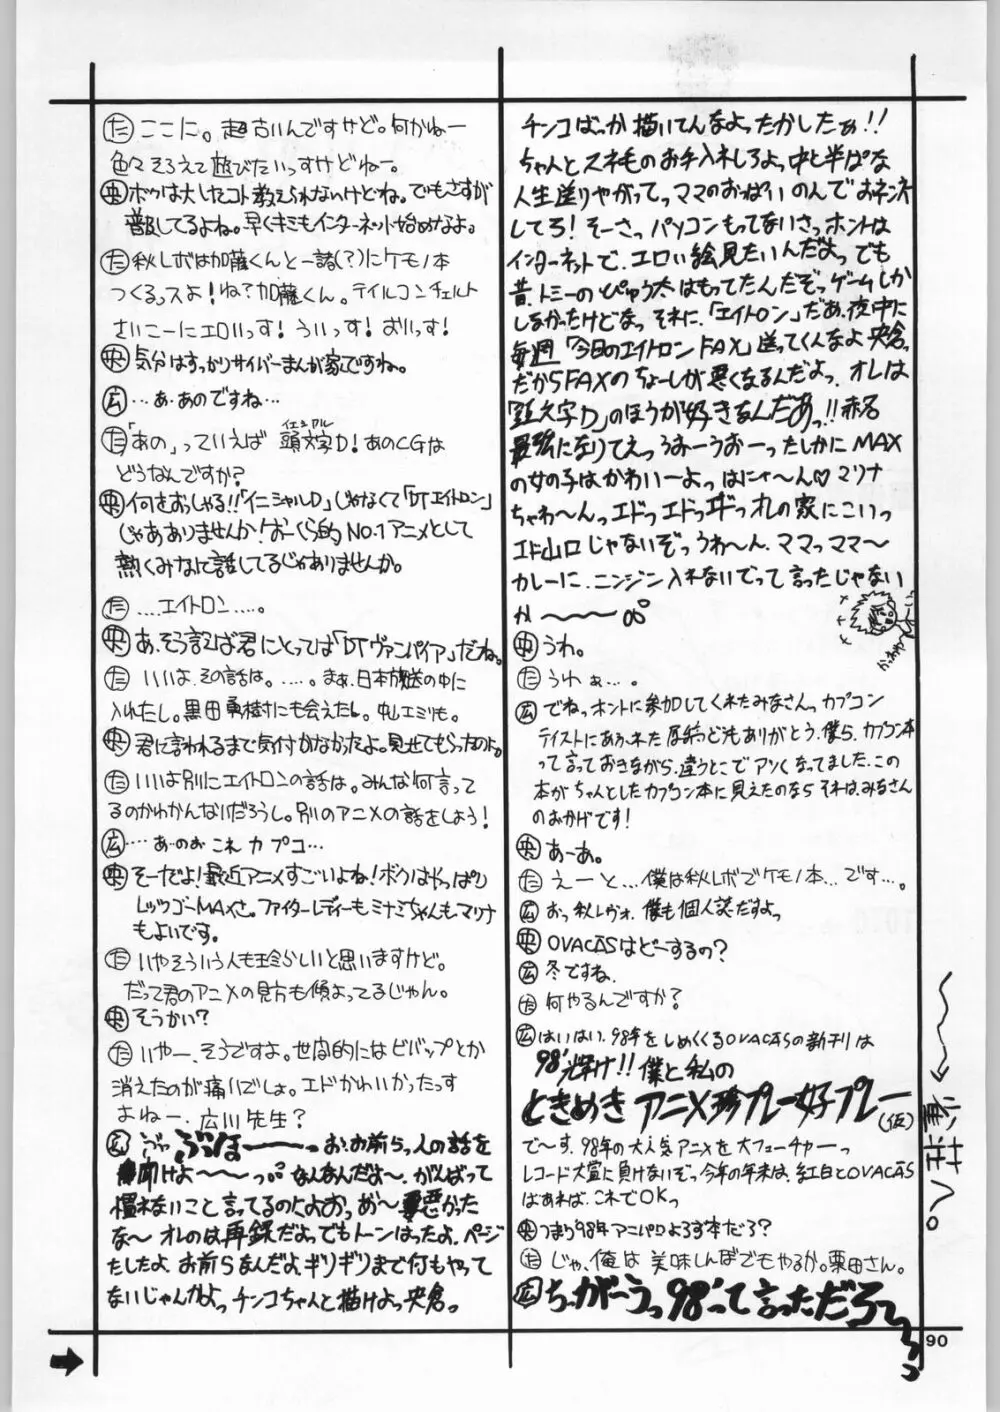 た ここに。超古いんですけど。何かねー
色々そろえて遊びたいっすけどねー。
央 ボクは大したコト教えられないけどね。でもさすが
普及してるよね。早くキミもインターネット始めなよ。
た 秋レボは加藤くんと一諸(?)にケモノ本
つくるっスよ!ね?加藤くん。テイルコンチェルト
さいこーにエロいっす!ういっす!おいっす!
央 気分はすっかりサイバーまんが家ですね。
広 …あ・あのですね…
た 「あの」っていえば 頭文字D!あのCGは
イニシャル
どうなんですか?
央 何をおっしゃる!!「イニシャルD」じゃなくて「DTエイトロン」
じゃああありませんか!おーくら的No.1アニメとして
熱くみなで話してるじゃありませんか。
た ‥‥エイトロン‥‥。
央 あ、そう言えば君にとっては「DTヴァンパイア」だね。
た いいよ、その話は。‥‥。まぁ、日本放送の中に
入れたし。黒田勇樹にも会えたし。中山エミリも。
央 君に言われるまで気付かなかったよ。見せてもらったのよ。
た いいよ別にエイトロンの話は。みんな何言って
るのかわかんないだろうし。別のアニメの話をしよう!
広 …あのお これ カプコ…
央 そーだよ!最近アニメすごいよね!ボクはやっぱり
レッツゴーMAXさ。ファイターレディーもミナミちゃんも、マリナ
もよいです。
た いやそういう人も珍らしいと思いますけど。
だって君のアニメの見方も傾よってるじゃん。
央 そうかい?
た いやー、そうですよ。世間的にはビバップとか
消えたのが痛いでしょ。エドかわいかったっす
よねー、広川先生?
広 ぶっ ぶっほ〜〜〜っお、お前ら、人の話を
聞けよ〜〜っ。なんなんだよ〜、がんばって
慣れないこと言ってるのによおっ、め〜悪かった
な〜オレのは再録だよっでもトーンはったよ、ページ
たしたよ、お前らなんだよ、ギリギリまで何もやって
ないじゃんかよっ チンコちゃんと描けよっ央倉っ
チンコばっか描いてんなよったかしたぁ!!
ちゃんとスネ毛のお手入れしろよっ中と半ぱな
人生送りやがってっママのおっぱいのんでおネンネ
してろ!そーさっパソコンもってないさっホントは
インターネットで、エロい絵見たいんだよっでも
昔、トミーのぴゅう太はもってたんだぞっゲームしか
しなかったけどなっ それに、「エイトロン」だあ、夜中に
毎週「今日のエイトロンFAX」送ってくんなよ央倉っ
だからFAXのちょーしが悪くなるんだよっ、オレは
「頭文字D」のほうが好きなんだあっ!!赤名
最強になりてえっうおーうおーったしかにMAX
の女の子はかわいーよっはにゃ〜ん♡マリナ
ちゃわ〜んっエドっエドっエドっオレの家にこいっ
エド山口じゃないぞっうわ〜ん、ママっママ〜
カレーに、ニンジン入れないでって言ったじゃない
か〜〜〜
央 うわ。
た うわぁ…。
広 でねっホントに参加してくれたみなさんっカプコン
テイストにあふれた原稿っどうもありがとう、僕ら、カプコン本
って言っておきながら、違うとこでアツくなってました、この
本がちゃんとしたカプコン本に見えたのなら それは、みなさん
のおかげです!
央 あーあ。
た えーと…僕は秋レボでケモノ本…です…。
広 おっ秋レヴォ、僕も個人誌だすよっ
央 OVACASはどーするの?
広 冬ですね。
た 何やるんですか?
広 はいはい、98年をしめくくるOVACASの新刊は
98'輝け!!僕と私の
ときめき アニメ珍プレー好プレー(仮)
で〜す、98年の大人気アニメを大フューチャーっ
レコード大賞に負けないぞっ今年の年末は、紅白とOVACAS
はあれば、これでOKっ
央 つまり98年アニパロよろず本だろ?
た じゃ、俺は 美味しんぼでもやるか。栗田さん。
広 ちっがーうっ98'って言っただろ〜〜〜っ
90